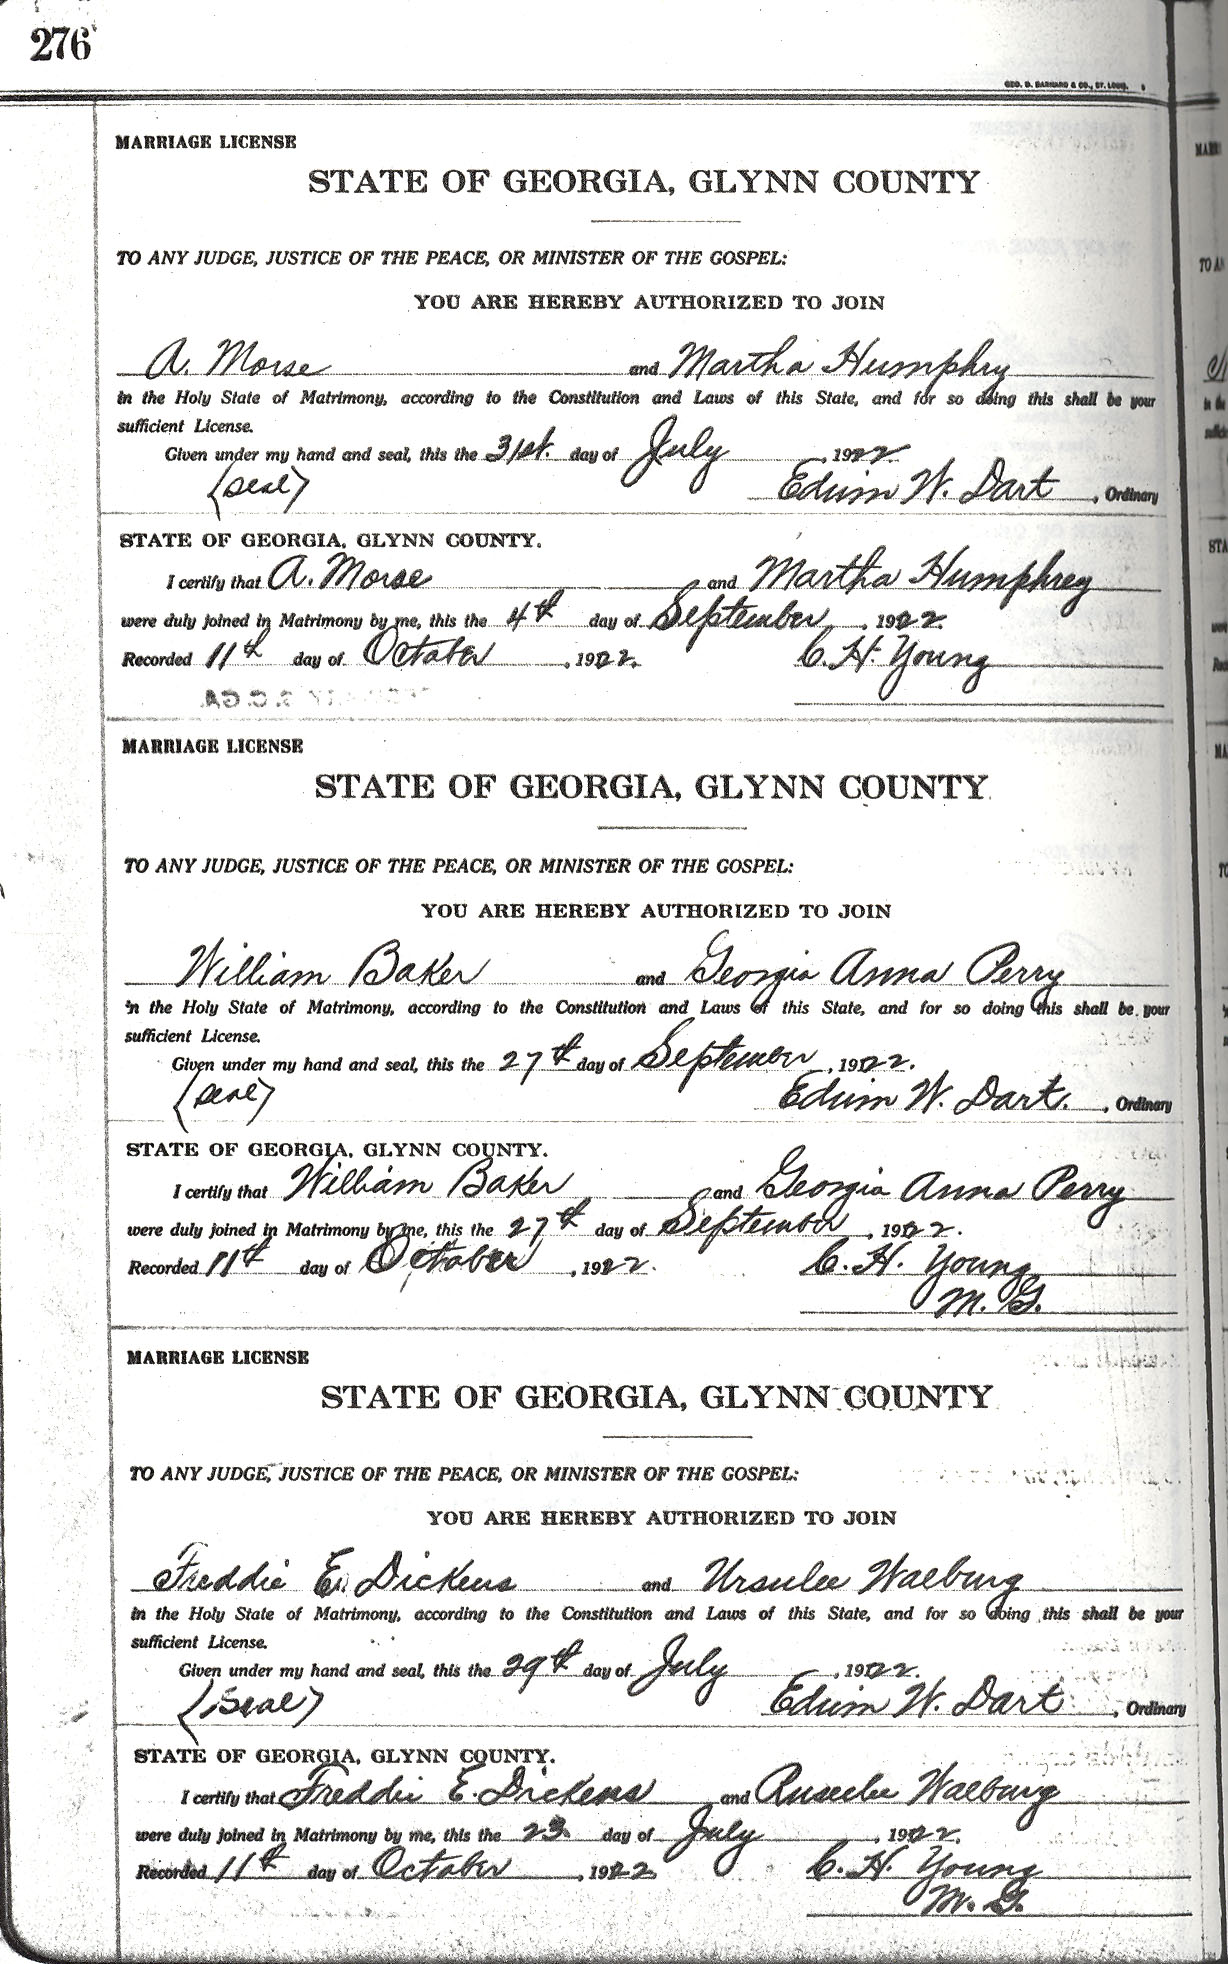 276
GEO. D. BARNARD & CO., ST. LOUIS.
MARRIAGE LICENSE
STATE OF GEORGIA, GLYNN COUNTY
TO ANY JUDGE, JUSTICE OF THE PEACE, OR MINISTER OF THE GOSPEL:
YOU ARE HEREBY AUTHORIZED TO JOIN
A. Morse and Martha Humphry
in the Holy State of Matrimony, according to the Constitution and Laws of this State, and for so doing this shall be your
sufficient License.
Given under my hand and seal, this the 31st. day of July, 1922.
(seal) Edwin W. Dart, Ordinary
STATE OF GEORGIA, GLYNN COUNTY.
I certify that A. Morse and Martha Humphrey
were duly joined in Matrimony by me, this the 4th day of September, 1922.
Recorded 11th day of October, 1922. C. H. Young
MARRIAGE LICENSE
STATE OF GEORGIA, GLYNN COUNTY
TO ANY JUDGE, JUSTICE OF THE PEACE, OR MINISTER OF THE GOSPEL:
YOU ARE HEREBY AUTHORIZED TO JOIN
William Baker and Georgia Anna Perry
in the Holy State of Matrimony, according to the Constitution and Laws of this State, and for so doing this shall be your
sufficient License.
Given under my hand and seal, this the 27th day of September, 1922.
(seal) Edwin W. Dart., Ordinary
STATE OF GEORGIA, GLYNN COUNTY.
I certify that William Baker and Georgia Anna Perry
were duly joined in Matrimony by me, this the 27th day of September, 1922.
Recorded 11th day of October, 1922. C. H. Young
M. G.
MARRIAGE LICENSE
STATE OF GEORGIA, GLYNN COUNTY
TO ANY JUDGE, JUSTICE OF THE PEACE, OR MINISTER OF THE GOSPEL:
YOU ARE HEREBY AUTHORIZED TO JOIN
Freddie E. Dickens and Ursulee Walburg
in the Holy State of Matrimony, according to the Constitution and Laws of this State, and for so doing this shall be your
sufficient License.
Given under my hand and seal, this the 29th day of July, 1922.
(Seal) Edwin W. Dart, Ordinary
STATE OF GEORGIA, GLYNN COUNTY.
I certify that Freddie E. Dickens and Walburg
were duly joined in Matrimony by me, this the 23 day of July, 1922.
Recorded 11th day of October, 1922 C. H. Young
M. G.